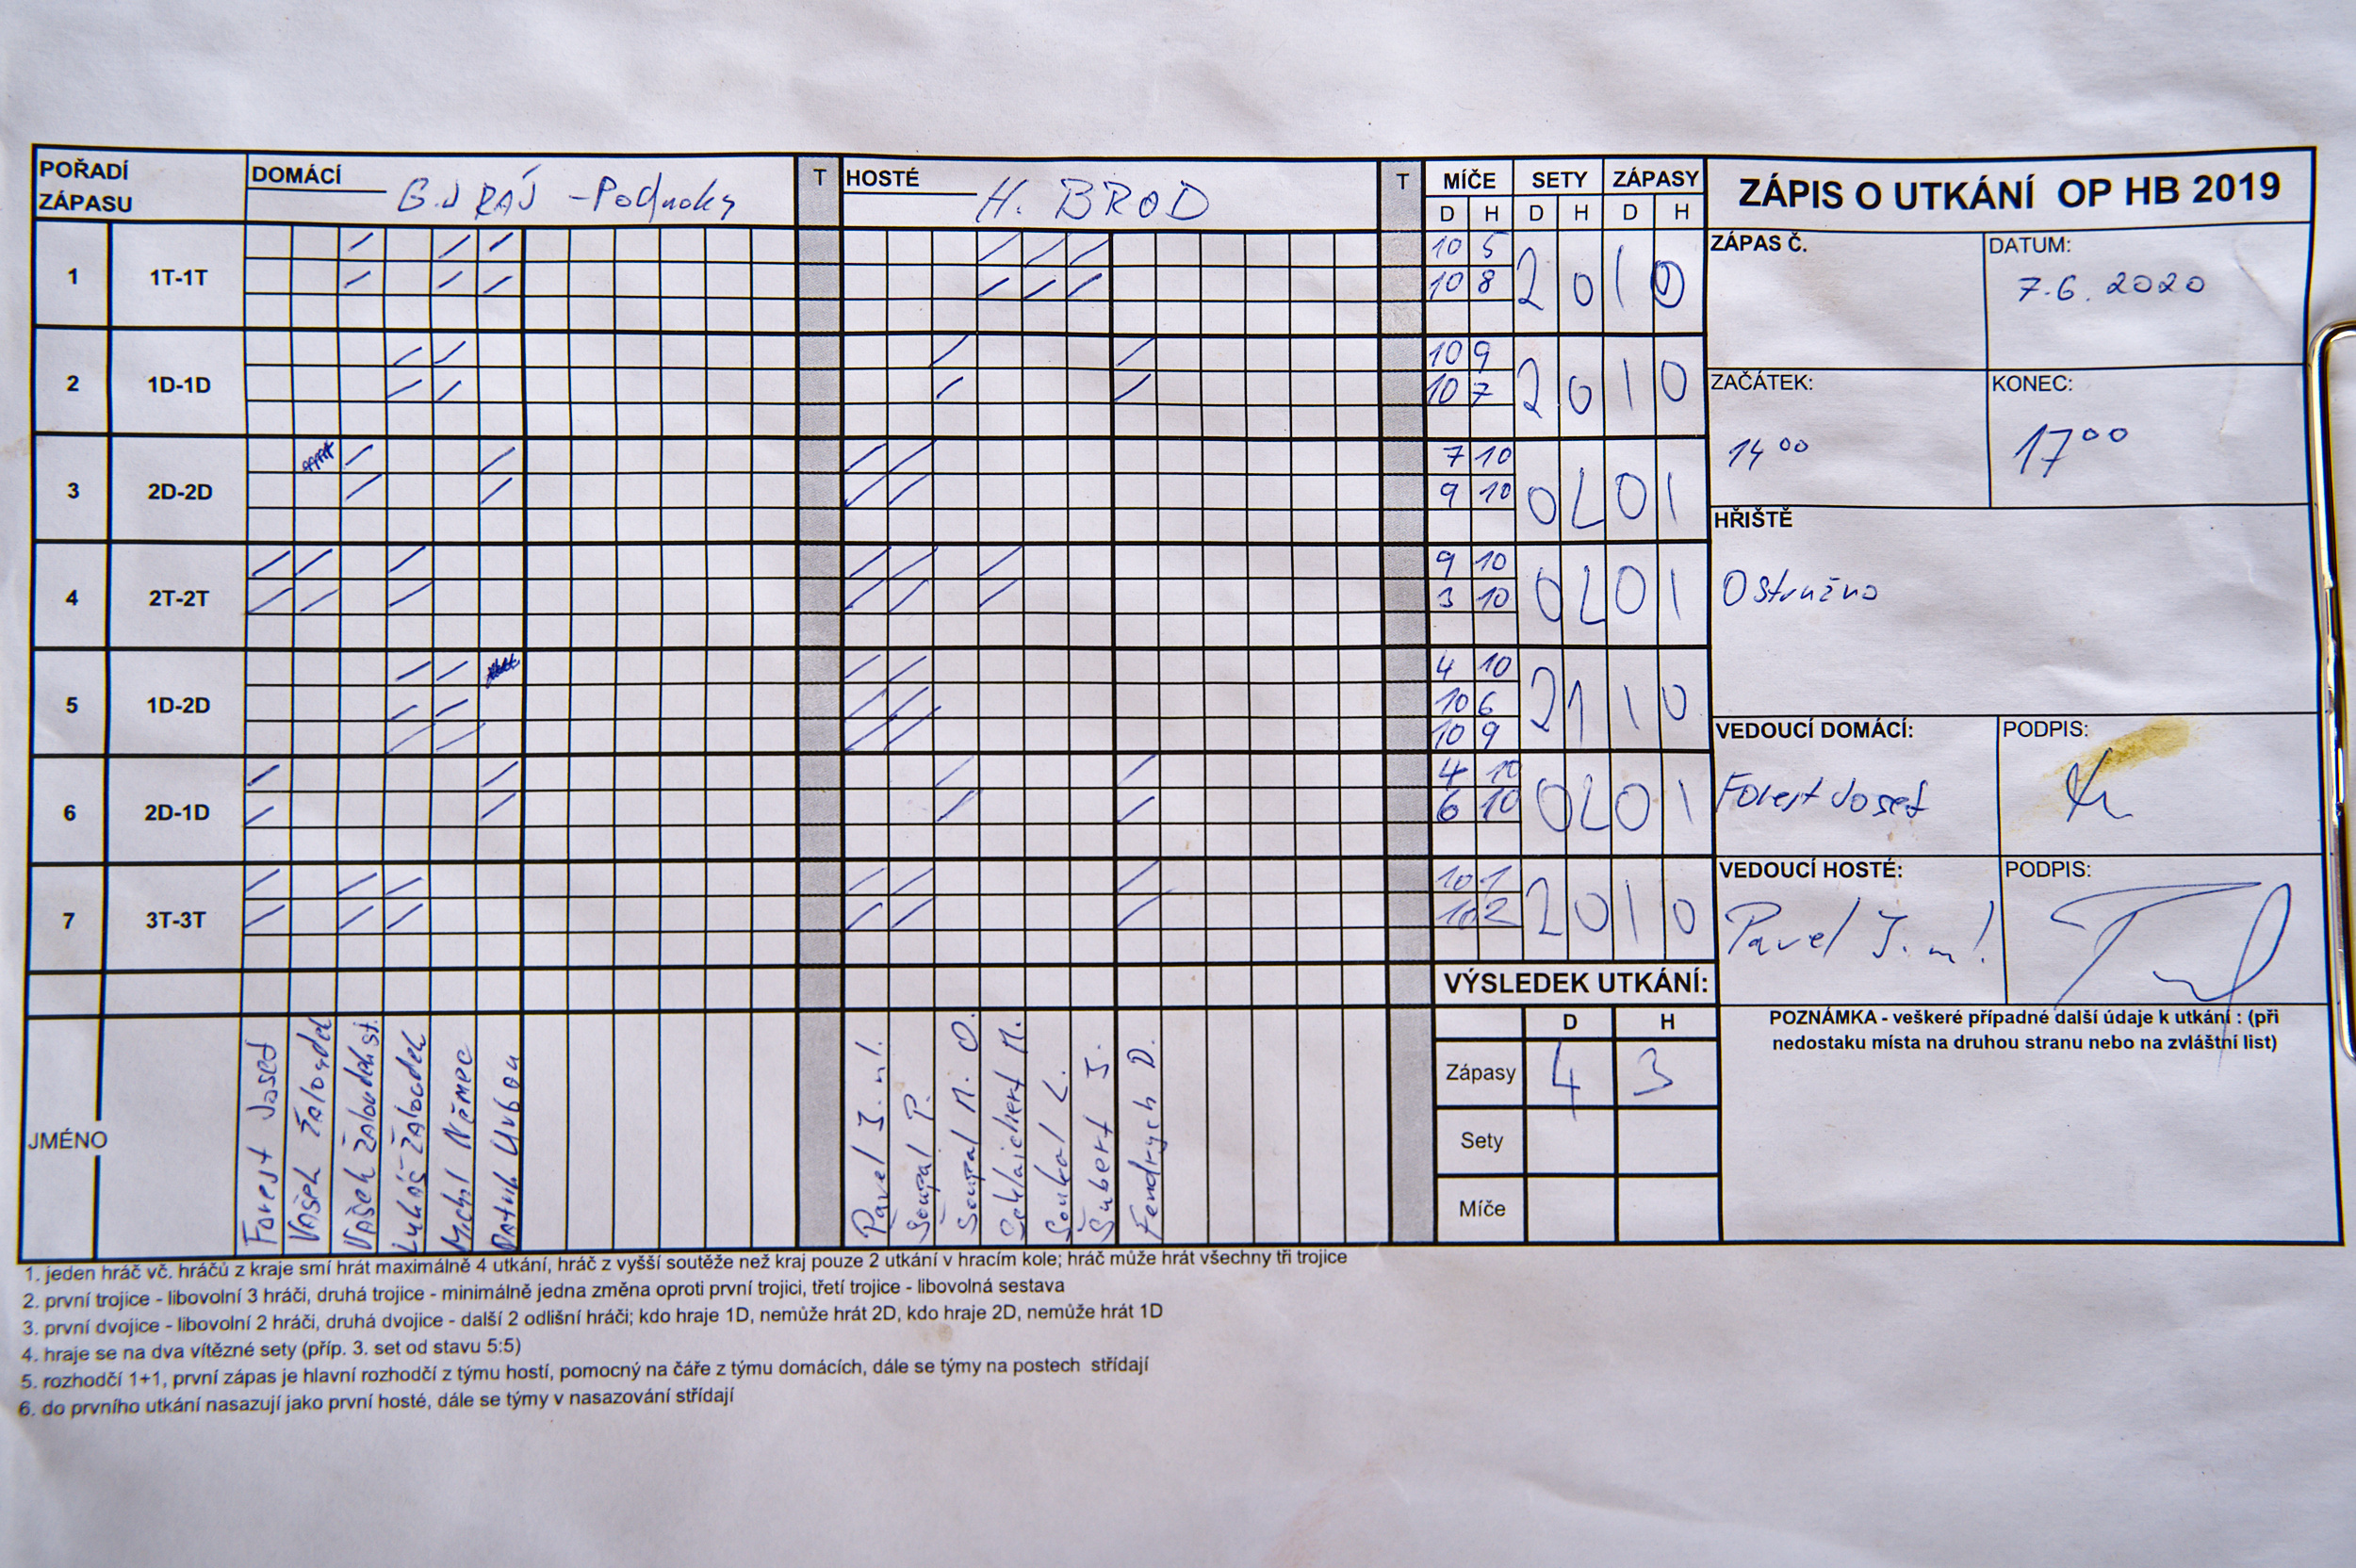 POŘADÍ ZÁPASU DOMÁCÍ G.J RÁJ - T HOSTÉ H. BROD T MÍČE SETY ZÁPASY ZÁPIS O UTKÁNÍ OP HB 2019
D H D H D H
1 1T-1T 10 5 2 0 1 0
10 8
ZÁPAS Č. DATUM:
7.6. 2020
2 1D-1D 10 9 2 0 1 0
10 7
ZAČÁTEK: KONEC:
14 00 17 00
3 2D-2D 7 10 0 2 0 1
9 10
HŘIŠTĚ
Ostružno
4 2T-2T 9 10 0 2 0 1
3 10
5 1D-2D 4 10 2 1 1 0
10 6
10 9
VEDOUCÍ DOMÁCÍ: PODPIS:
Forest Josef
6 2D-1D 4 10 0 2 0 1
6 10
VEDOUCÍ HOSTÉ: PODPIS:
Pavel J. ml
7 3T-3T 10 1 2 0 1 0
10 2
VÝSLEDEK UTKÁNÍ:
D H
Zápasy 4 3
Sety
Míče
POZNÁMKA - veškeré případné další údaje k utkání : (při
nedostaku místa na druhou stranu nebo na zvláštní list)
JMÉNO
Forest Josef
Vašek Žaloudek
Vašek Žaloudek st.
Lukáš Žaloudek
Michl Němec
Patrik Urban
Pavel J. ml.
Šoupal P.
Šoupal M. O.
Schlaichert M.
Soukal L.
Šubert J.
Fendrych D.
1. jeden hráč vč. hráčů z kraje smí hrát maximálně 4 utkání, hráč z vyšší soutěže než kraj pouze 2 utkání v hracím kole; hráč může hrát všechny tři trojice
2. první trojice - libovolní 3 hráči, druhá trojice - minimálně jedna změna oproti první trojici, třetí trojice - libovolná sestava
3. první dvojice - libovolní 2 hráči, druhá dvojice - další 2 odlišní hráči; kdo hraje 1D, nemůže hrát 2D, kdo hraje 2D, nemůže hrát 1D
4. hraje se na dva vítězné sety (příp. 3. set od stavu 5:5)
5. rozhodčí 1+1, první zápas je hlavní rozhodčí z týmu hostí, pomocný na čáře z týmu domácích, dále se týmy na postech střídají
6. do prvního utkání nasazují jako první hosté, dále se týmy v nasazování střídají